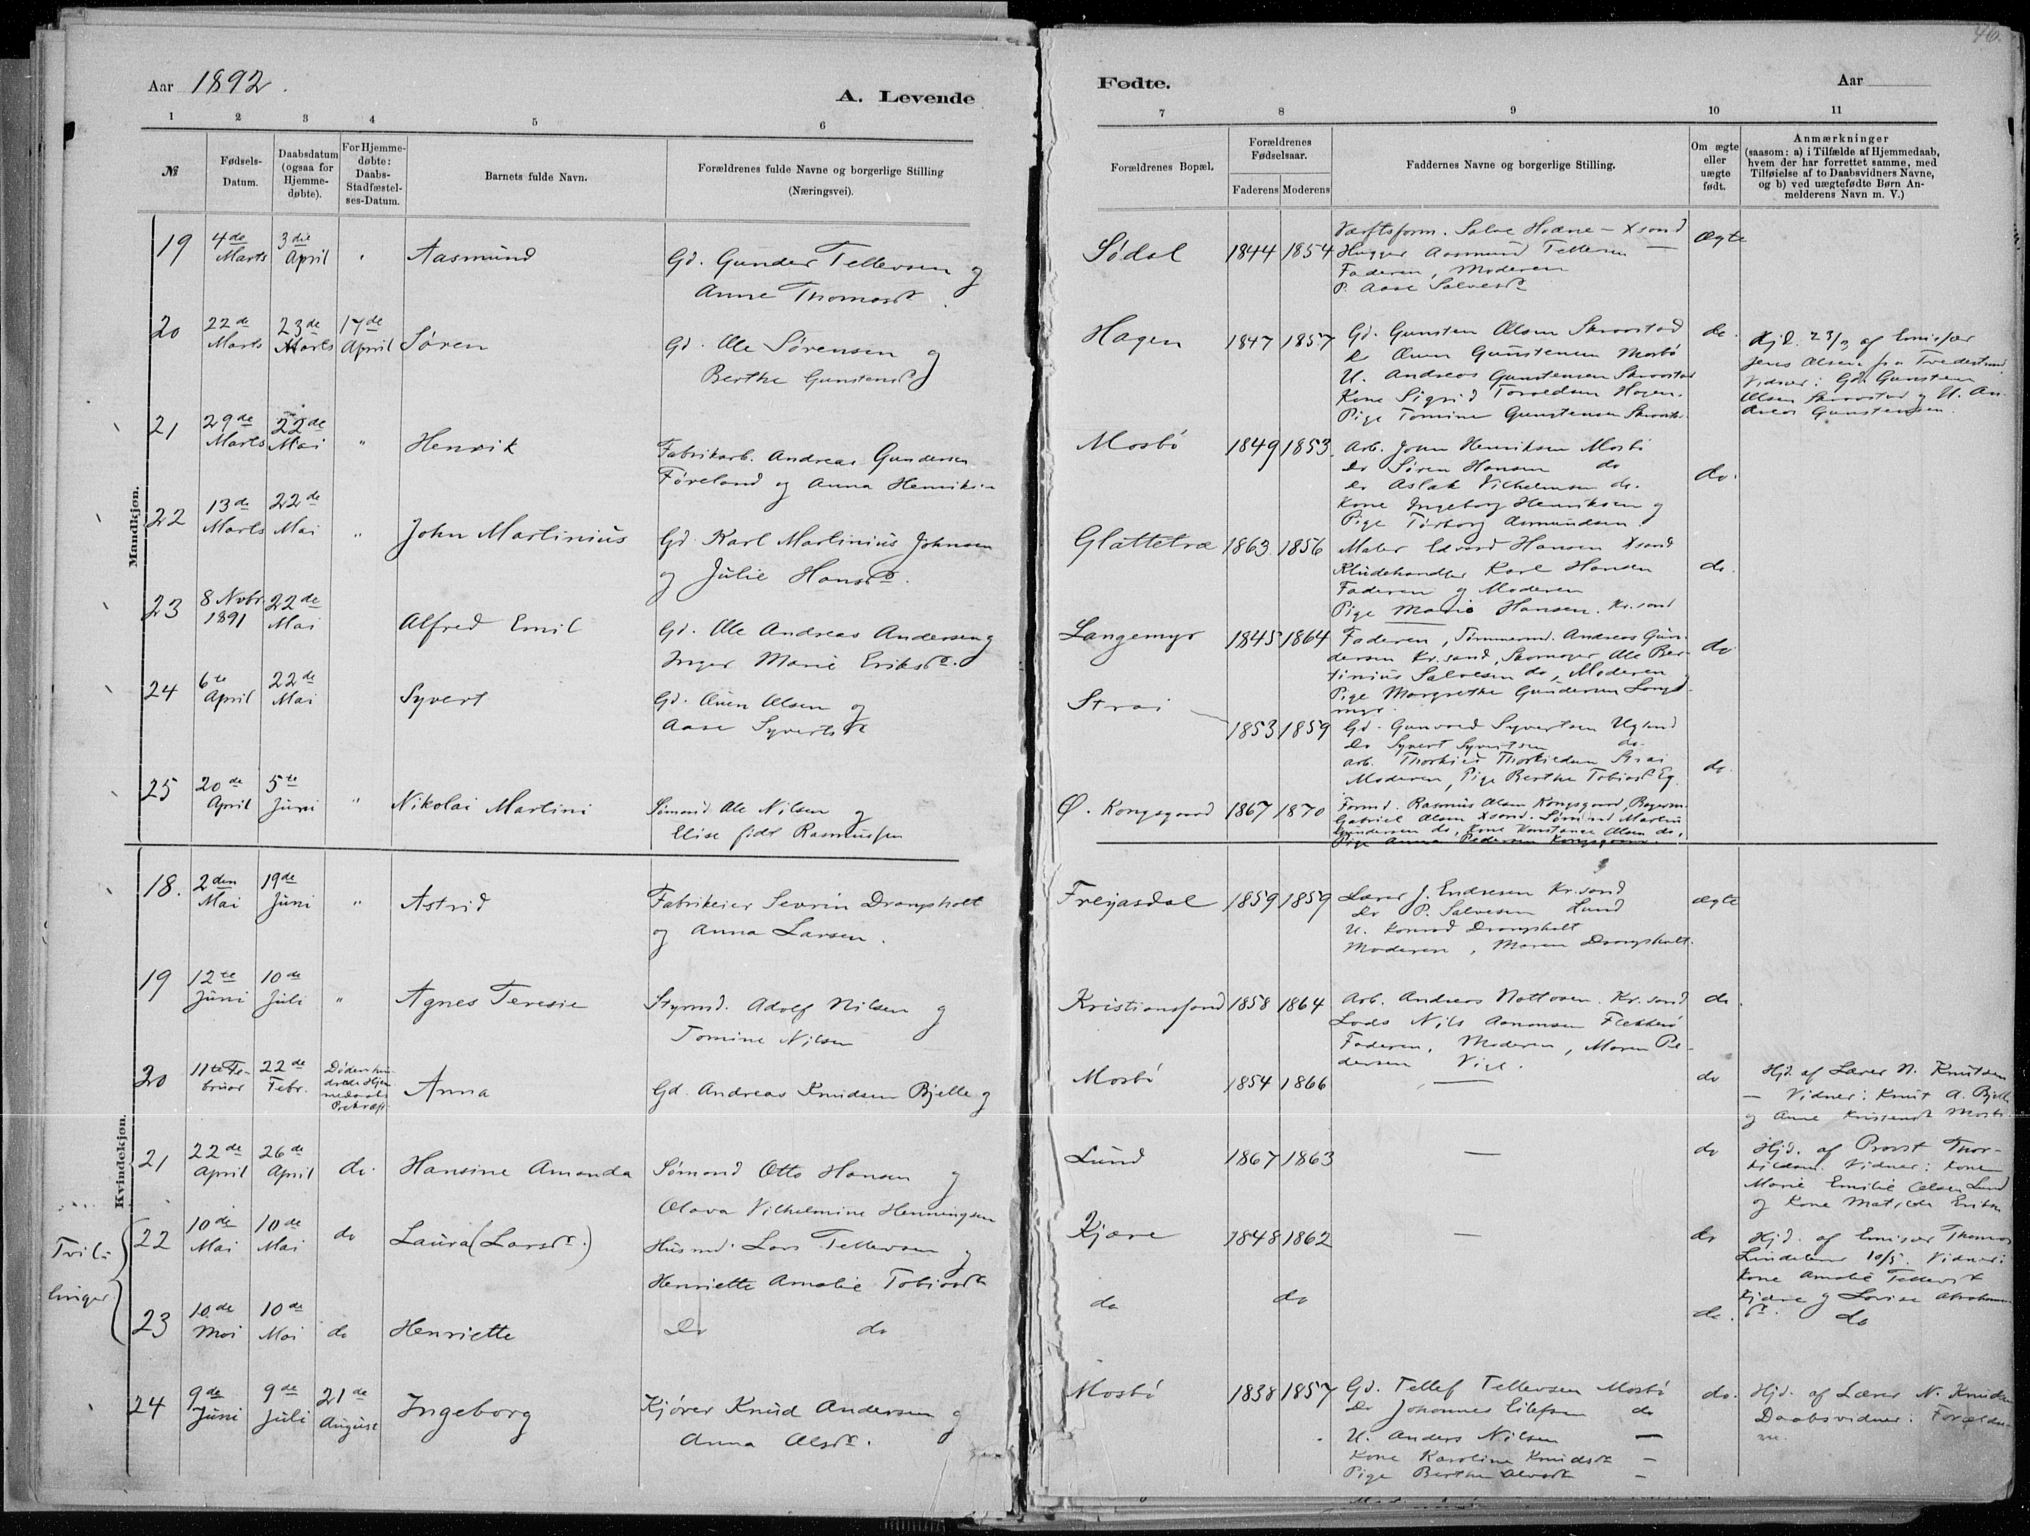 Aar 1892.
A. Levende
1 2 3 4 5 6
№
Fødsels-
Datum.
Daabsdatum
(ogsaa for
Hjemme-
døbte).
For Hjemme-
døbte:
Daabs-
Stadfæstel-
ses-Datum.
Barnets fulde Navn.
Forældrenes fulde Navne og borgerlige Stilling
(Næringsvei).
Mandkjøn.
19 4de Marts 3die April " Aasmund
Gd. Gunder Tellevsen og
Anne Thomasdr
20 22de Marts 23de Marts 17de April Søren
Gd. Ole Sørensen og
Berthe Gunstensdr
21 29de Marts 22de Mai " Henrik
Fabrikarb. Andreas Gundersen
Føreland og Anna Henriksen
22 13de Marts 22de Mai " John Martinius
Gd. Karl Martinius Johnsen
og Julie Hansdr.
23 8 Novbr. 1891 22de Mai Alfred Emil
Gd. Ole Andreas Andersen og
Inger Marie Eriksdr.
24 6te April 22de Mai Syvert
Gd. Ouen Olsen og
Aase Syvertsdr
25 20de April 5te Juni " Nikolai Martini
Sømand Ole Nilsen og
Elise født Rasmussen
Kvindekjøn.
18. 2den Mai 19de Juni " Astrid
Fabrikeier Sevrin Drangsholt
og Anna Larsen.
19 12te Juni 10de Juli " Agnes Teresie
Styrmd. Adolf Nilsen og
Tomine Nilsen
20 11te Februar 22de Febr. Anna
Gd. Andreas Knudsen Bjelle og
21 22de April 26de April do. Hansine Amanda
Sømand Otto Hansen og
Olava Vilhelmine Henningsen
Tvil-
linger
22 10de Mai 10de Mai do Laura (Larsdr.)
Husmd. Lars Tellevsen og
Henriette Amalie Tobiasdr
23 10de Mai 10de Mai do Henriette
Do do
24 9de Juni 9de Juli 21de August Ingeborg
Kjører Knud Andersen og
Anna Olsdr.
46.
Fødte.
Aar
7 8 9 10 11
Forældrenes Bopæl.
Forældrenes
Fødselsaar.
Faderens Moderens
Faddernes Navne og borgerlige Stilling.
Om ægte
eller
uægte
født.
Anmærkninger
(saasom: a) i Tilfælde af Hjemmedaab,
hvem der har forrettet samme, med
Tilføielse af to Daabsvidners Navne,
og b) ved uægtefødte Børn An-
melderens Navn m. V.)
Sødal 1844 1854
Værftsform. Salve Hodne - Xsand
Hugger Aasmund Tellevsen —
Faderen, Moderen
P. Aase Salvesdr
Ægte
Hagen 1847 1857
Gd. Gunsten Olsen Skraastad
Do Ouen Gunstensen Mosbø
U. Andreas Gunstensen Skraastad
Kone Sigrid Torvedsen Hagen.
Pige Tomine Gunstensen
do.
Hjd. 23/3 af Emissær
Jens Olsen fra Tvedestrand
Vidner: Gd. Gunsten
Olsen Skraastad og U. An-
dreas Gunstensen.
Mosbø 1849 1853
Arb. John Henriksen Mosbø
Do Søren Hansen do
Do Aslak Vilhelmsen do.
Kone Ingeborg Henriksen og
Pige Torborg Asmundsen.
do.
Glattetræ 1863 1856
Maler Edvard Hansen Xsand
Kludehandler Karl Hansen
Faderen og Moderen
Pige Marie Hansen. Kr.sand
do.
Langemyr 1845 1864
Faderen, Tømmermd. Andreas Gun-
dersen Kr.sand, Skomager Ole Ber-
tinius Salvesen do, Moderen
Pige Margrethe Gundersen Lange-
myr.
do
Strai 1853 1859
Gd. Gunvord Syvertsen Ugland
Do Syvert Syvertsen do.
Moderen, Pige Berthe Tobiasdr Eg
do.
Ø. Kongsgaard 1867 1870
Formd. Rasmus Olsen Kongsgaard,
Gabriel Olsen Xsand. Sømand Martin
Gundersen do, Kone Konstance Olsen do,
Pige Anna Pedersen Kongsgaard.
Freyasdal 1859 1859
Lærer J. Endresen Kr.sand
Do P. Salvesen Lund
U. Konrad Drangsholt
Moderen, Maren Drangsholt.
ægte
Kristianssand 1858 1864
Arb. Andreas Nottosen. Kr.sand
Lods Nils Aanonsen Flekkerø
Faderen, Moderen, Maren Pe-
dersen Vige.
do.
Mosbø 1854 1866 —
do
Hjd. af Lærer N. Knutsen
— Vidner: Knut A. Bjelle
og Anne Knutsendr Mosbø
Lund 1867 1863 —
do
Hjd. af Provst Thor-
kildsen. Vidner: Kone
Marie Emilie Olsen Lund
og Kone Matilde Eriksen
Kjære 1848 1862 —
do
Hjd. af Emissær Thomas
Lindeland 10/5. Vidner:
Kone Amalie Tellevsdr
Kjære og Lovise Abraham-
sdr.
do do do. do
Mosbø 1838 1857
Gd. Tellef Tellevsen Mosbø
Do Johannes Eilefsen do
U. Anders Nilsen —
Kone Karoline Knudsdr —
Pige Berthe Olavsdr —
do.
Hjd. af Lærer N. Knudsen
Daabsvidner: Forældre-
ne.